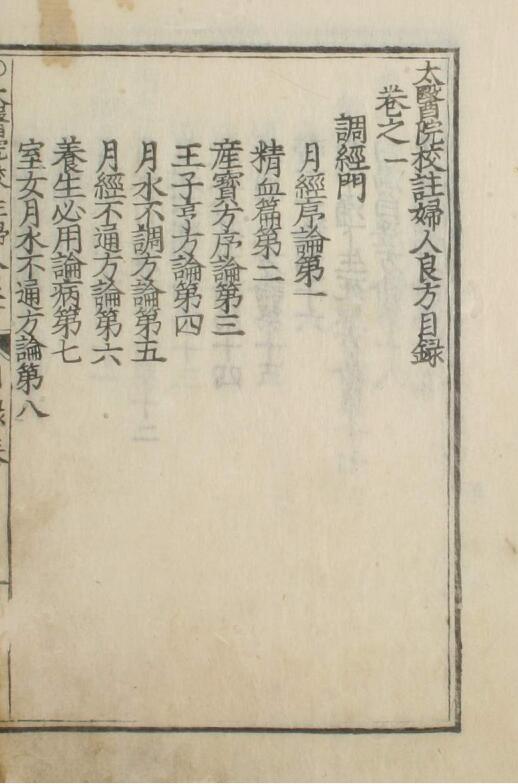 太醫院校註婦人良方目録
卷之一
調經門
月經序論第一
精血篇第二
産寶方序論第三
王子亨方論第四
月水不調方論第五
月經不通方論第六
養生必用論病第七
室女月水不通方論第八